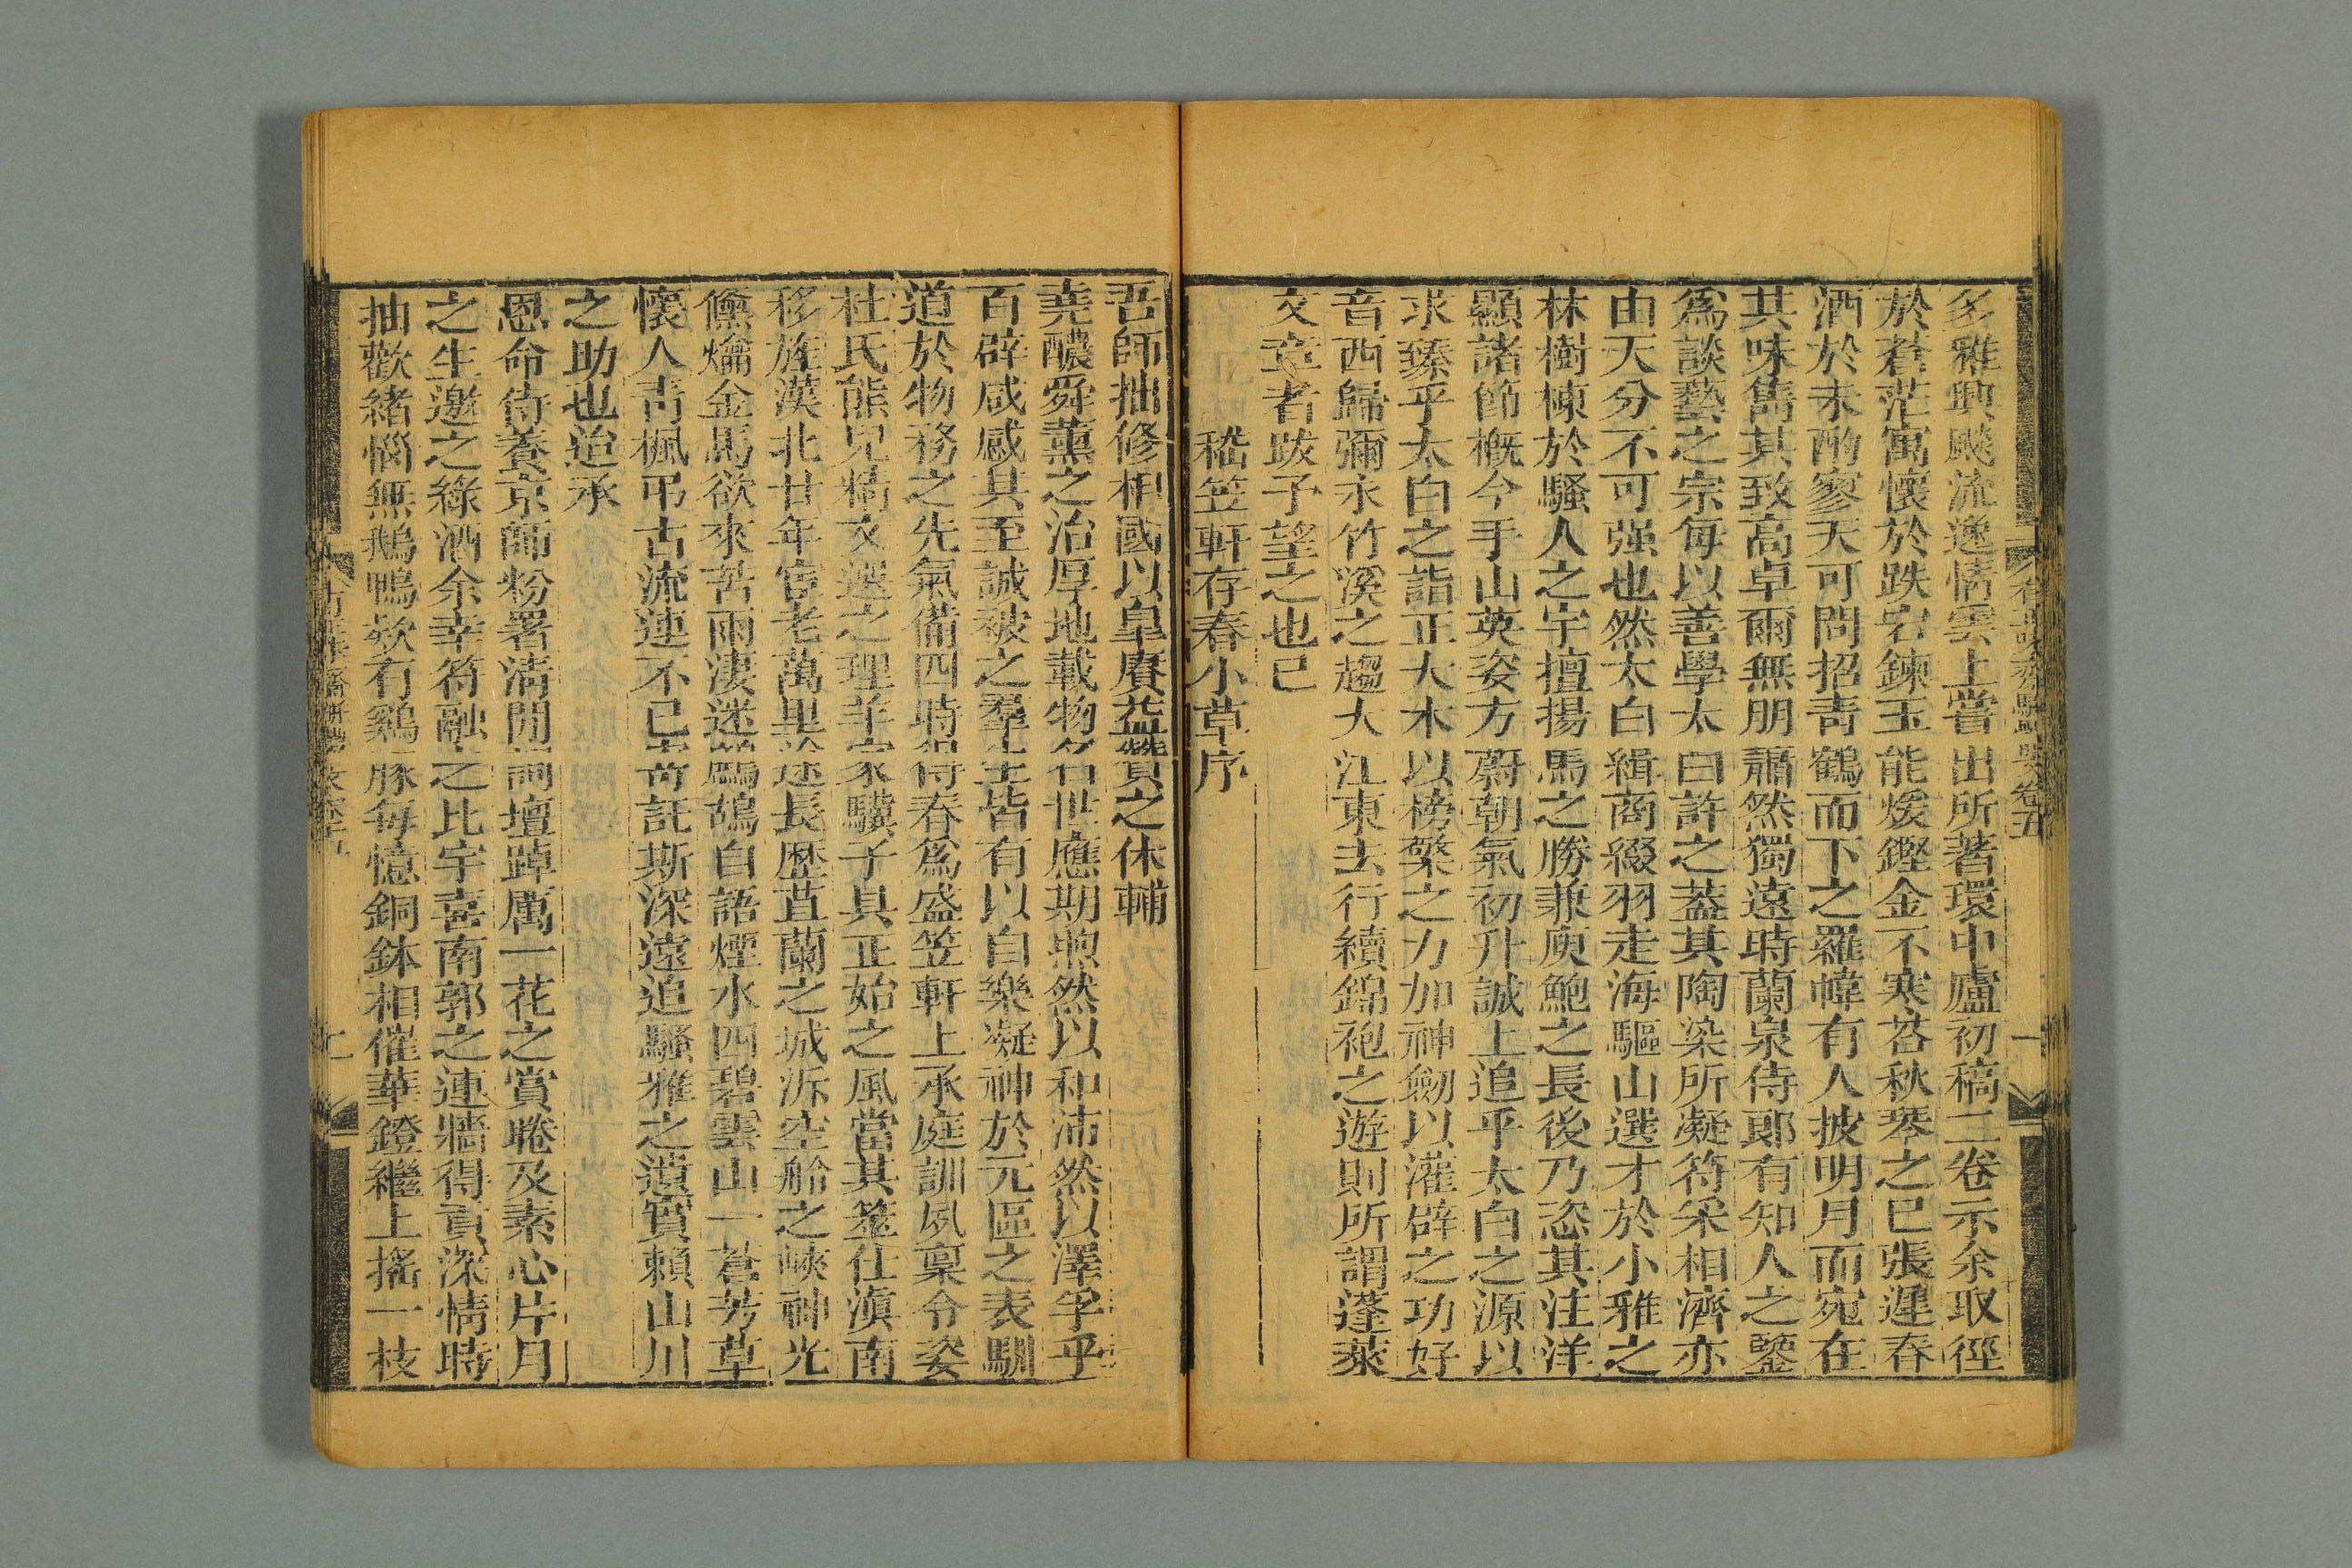 多雅興飈流逸情雲上嘗出所著環中廬初稿二卷示余取徑
於蒼茫寓懷於跌宕鍊玉能煖鏗金不寒苔秋琴之已張遲春
酒於未酌寥天可問招靑鶴而下之羅幃有人披明月而宛在
其味雋其致高卓爾無朋蕭然獨遠時蘭泉侍郞有知人之鑒
爲談藝之宗每以善學太白許之蓋其陶染所凝符采相濟亦
由天分不可强也然太白緝商綴羽走海驅山選才於小雅之
林樹棟於騷人之宇擅揚馬之勝兼庾鮑之長後乃恣其汪洋
顯諸節槪今手山英姿方蔚朝氣初升誠上追乎太白之源以
求臻乎太白之詣正大木以榜檠之力加神劒以灌辟之功好
音西歸彌永竹溪之趨大江東去行續錦袍之遊則所謂蓬萊
文章者跋予望之也已
嵇笠軒存春小草序
吾師拙修相國以皐賡益贊之休輔
堯醲舜薰之治厚地載物名世應期煦然以和沛然以澤孚乎
百辟咸感其至誠被之羣生皆有以自樂凝神於元區之表馴
道於物務之先氣備四時得春爲盛笠軒上承庭訓夙稟令姿
杜氏熊兒精文選之理羊家驥子具正始之風當其筮仕滇南
移旌漢北廿年官老萬里途長歷苴蘭之城泝空舲之峽神光
儵爚金馬欲來苦雨淒迷鷓鴣自語煙水四碧雲山一蒼芳草
懷人靑楓弔古流連不已寄託斯深遠追騷雅之遺實賴山川
之助也迨承
恩命侍養京師粉署淸閒詞壇踔厲一花之賞睠及素心片月
之生邀之綠酒余幸符融之比宇喜南郭之連牆得貢深情時
抽歡緖惱無鵝鴨款有雞豚每憶銅鉢相催華鐙繼上搖一枝